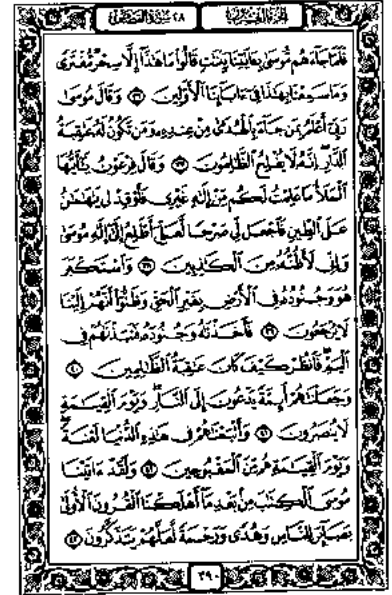 الجزء العشرون
٢٨ سورة القصص
فَلَمَّا جَآءَهُم مُّوسَىٰ بِـَٔايَـٰتِنَا بَيِّنَـٰتٍ قَالُوا۟ مَا هَـٰذَآ إِلَّا سِحْرٌ مُّفْتَرًى
وَمَا سَمِعْنَا بِهَـٰذَا فِىٓ ءَابَآئِنَا ٱلْأَوَّلِينَ ٣٦ وَقَالَ مُوسَىٰ
رَبِّىٓ أَعْلَمُ بِمَن جَآءَ بِٱلْهُدَىٰ مِنْ عِندِهِۦ وَمَن تَكُونُ لَهُۥ عَـٰقِبَةُ
ٱلدَّارِ إِنَّهُۥ لَا يُفْلِحُ ٱلظَّـٰلِمُونَ ٣٧ وَقَالَ فِرْعَوْنُ يَـٰٓأَيُّهَا
ٱلْمَلَأُ مَا عَلِمْتُ لَكُم مِّنْ إِلَـٰهٍ غَيْرِى فَأَوْقِدْ لِى يَـٰهَـٰمَـٰنُ
عَلَى ٱلطِّينِ فَٱجْعَل لِّى صَرْحًا لَّعَلِّىٓ أَطَّلِعُ إِلَىٰٓ إِلَـٰهِ مُوسَىٰ
وَإِنِّى لَأَظُنُّهُۥ مِنَ ٱلْكَـٰذِبِينَ ٣٨ وَٱسْتَكْبَرَ
هُوَ وَجُنُودُهُۥ فِى ٱلْأَرْضِ بِغَيْرِ ٱلْحَقِّ وَظَنُّوٓا۟ أَنَّهُمْ إِلَيْنَا
لَا يُرْجَعُونَ ٣٩ فَأَخَذْنَـٰهُ وَجُنُودَهُۥ فَنَبَذْنَـٰهُمْ فِى
ٱلْيَمِّ فَٱنظُرْ كَيْفَ كَانَ عَـٰقِبَةُ ٱلظَّـٰلِمِينَ ٤٠
وَجَعَلْنَـٰهُمْ أَئِمَّةً يَدْعُونَ إِلَى ٱلنَّارِ وَيَوْمَ ٱلْقِيَـٰمَةِ
لَا يُنصَرُونَ ٤١ وَأَتْبَعْنَـٰهُمْ فِى هَـٰذِهِ ٱلدُّنْيَا لَعْنَةً
وَيَوْمَ ٱلْقِيَـٰمَةِ هُم مِّنَ ٱلْمَقْبُوحِينَ ٤٢ وَلَقَدْ ءَاتَيْنَا
مُوسَى ٱلْكِتَـٰبَ مِنۢ بَعْدِ مَآ أَهْلَكْنَا ٱلْقُرُونَ ٱلْأُولَىٰ
بَصَآئِرَ لِلنَّاسِ وَهُدًى وَرَحْمَةً لَّعَلَّهُمْ يَتَذَكَّرُونَ ٤٣
٣٩٠